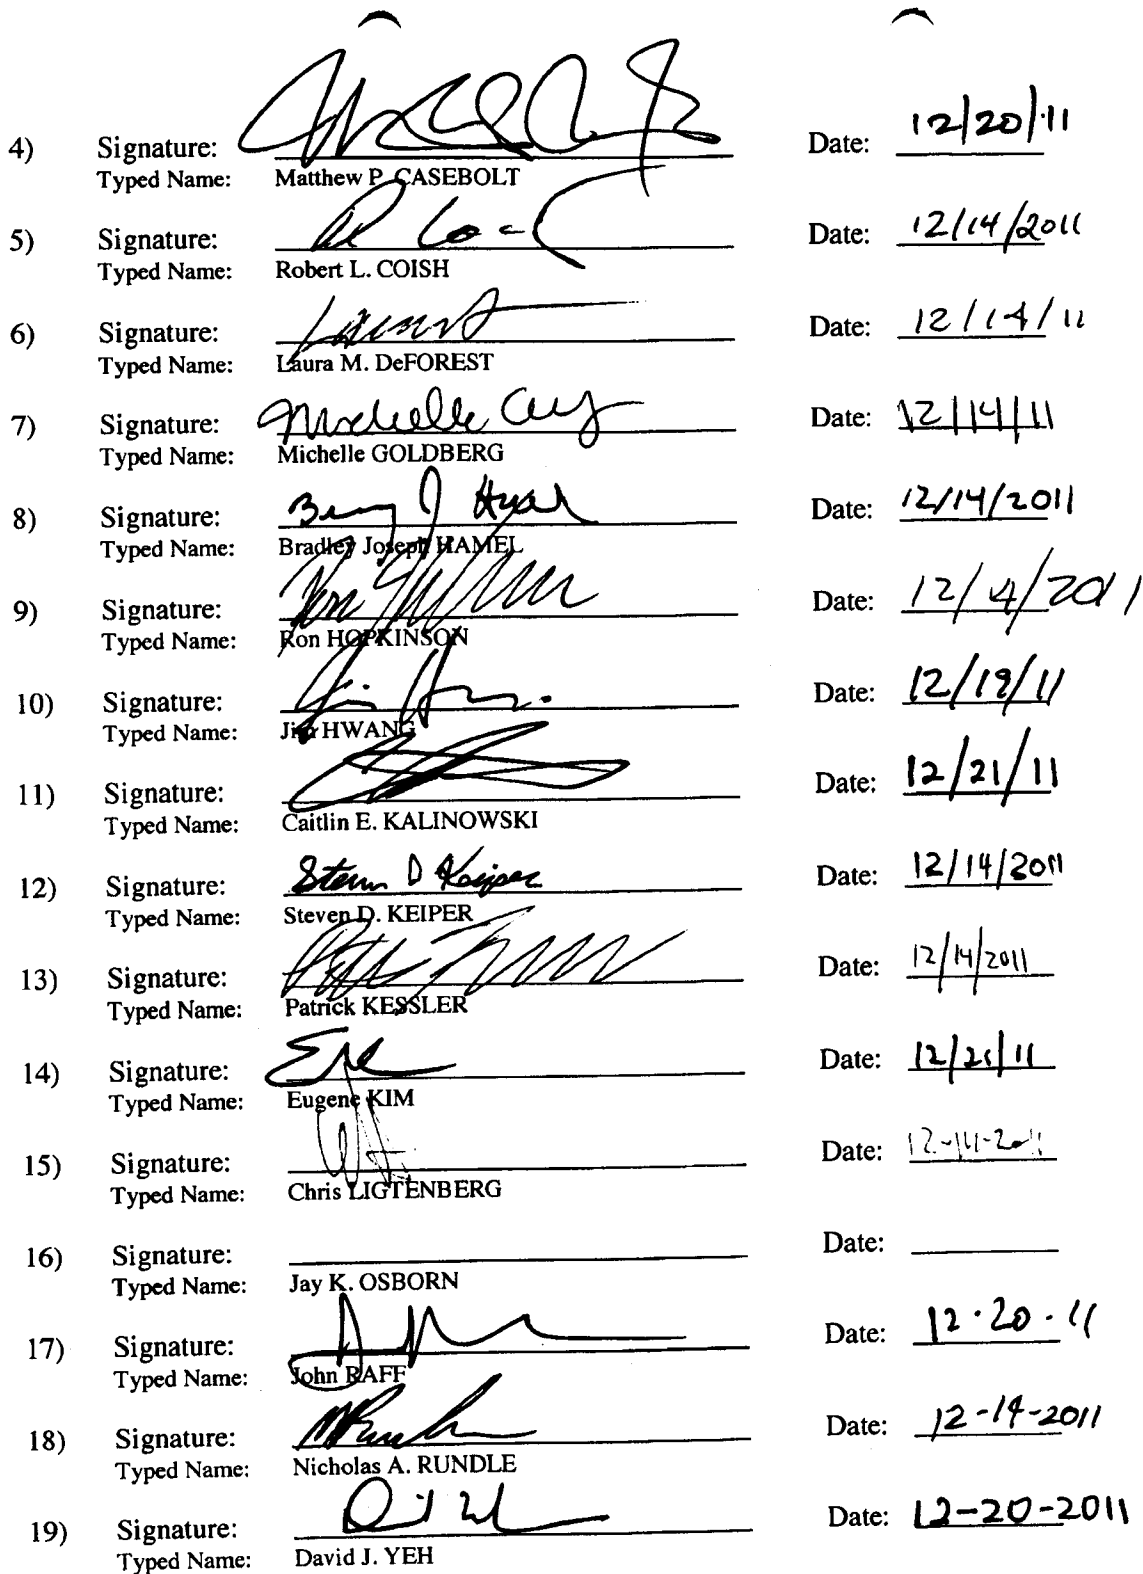 4) Signature: Date: 12/20/11
Typed Name: Matthew P. CASEBOLT
5) Signature: Date: 12/14/2011
Typed Name: Robert L. COISH
6) Signature: Date: 12/14/11
Typed Name: Laura M. DeFOREST
7) Signature: Michelle Date: 12/14/11
Typed Name: Michelle GOLDBERG
8) Signature: Date: 12/14/2011
Typed Name: Bradley Joseph HAMEL
9) Signature: Ron Date: 12/14/2011
Typed Name: Ron HOPKINSON
10) Signature: Date: 12/19/11
Typed Name: Jim HWANG
11) Signature: Date: 12/21/11
Typed Name: Caitlin E. KALINOWSKI
12) Signature: Steven D Keiper Date: 12/14/2011
Typed Name: Steven D. KEIPER
13) Signature: Date: 12/14/2011
Typed Name: Patrick KESSLER
14) Signature: Date: 12/21/11
Typed Name: Eugene KIM
15) Signature: Date: 12-14-2011
Typed Name: Chris LIGTENBERG
16) Signature: Date:
Typed Name: Jay K. OSBORN
17) Signature: Date: 12.20.11
Typed Name: John RAFF
18) Signature: Date: 12-14-2011
Typed Name: Nicholas A. RUNDLE
19) Signature: Date: 12-20-2011
Typed Name: David J. YEH